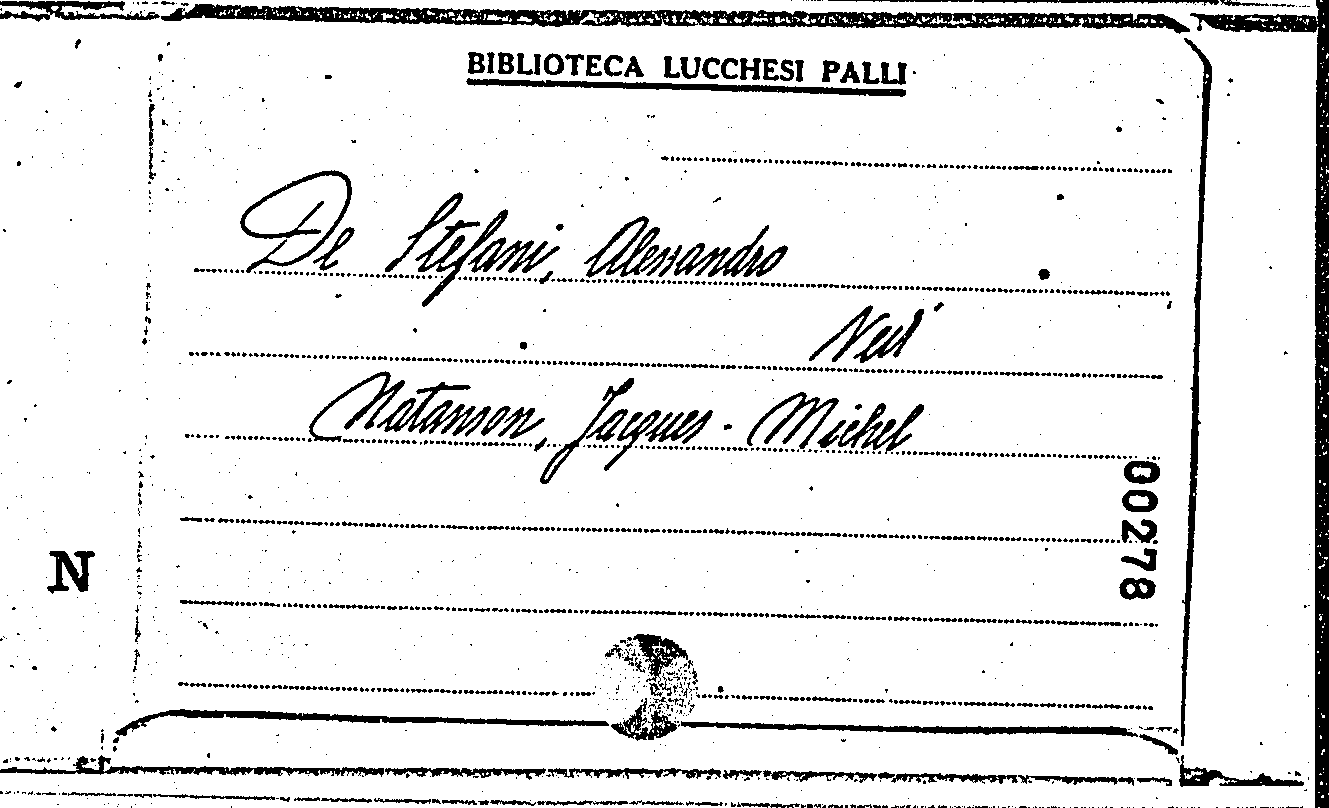 BIBLIOTECA LUCCHESI PALLI
De Stefani, Alessandro
Vedi
Natanson, Jacques-Michel
00278
N